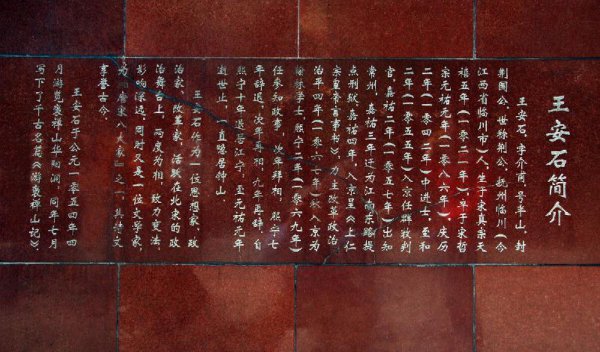 王安石简介
王安石，字介甫，号半山，封
荆国公、世称荆公，抚州临川（今
江西省临川市）人，生于宋真宗天
禧五年（一零二一），卒于宋哲
宗元祐元年（一零八六年）。庆历
二年（一零四二年）中进士，至和
二年（一零五五年）入京任群牧判
官，嘉祐二年（一零五七年）出知
常州，嘉祐三年迁为江南东路提
点刑狱。嘉祐四年，入京呈《上仁
宗皇帝言事书》，力主改革政治。
治平四年（一零六七年）秋入京为
翰林学士，熙宁二年（一零六九年）
任参知政事，次年拜相。熙宁七
年辞退，次年再相，九年再辞，自
熙宁十年退居江宁，至元祐元年
逝世止，一直隐居钟山。
王安石作为一位思想家、政
治家、改革家，活跃在北宋的政
治舞台上，两度为相，致力变法，
影响深远。同时又是一位文学家，
为“唐宋八大家”之一，其诗文
享誉古今。
王安石于公元一零五四年四
月游览褒禅山华阳洞，同年七月
写下了千古名篇《游褒禅山记》。